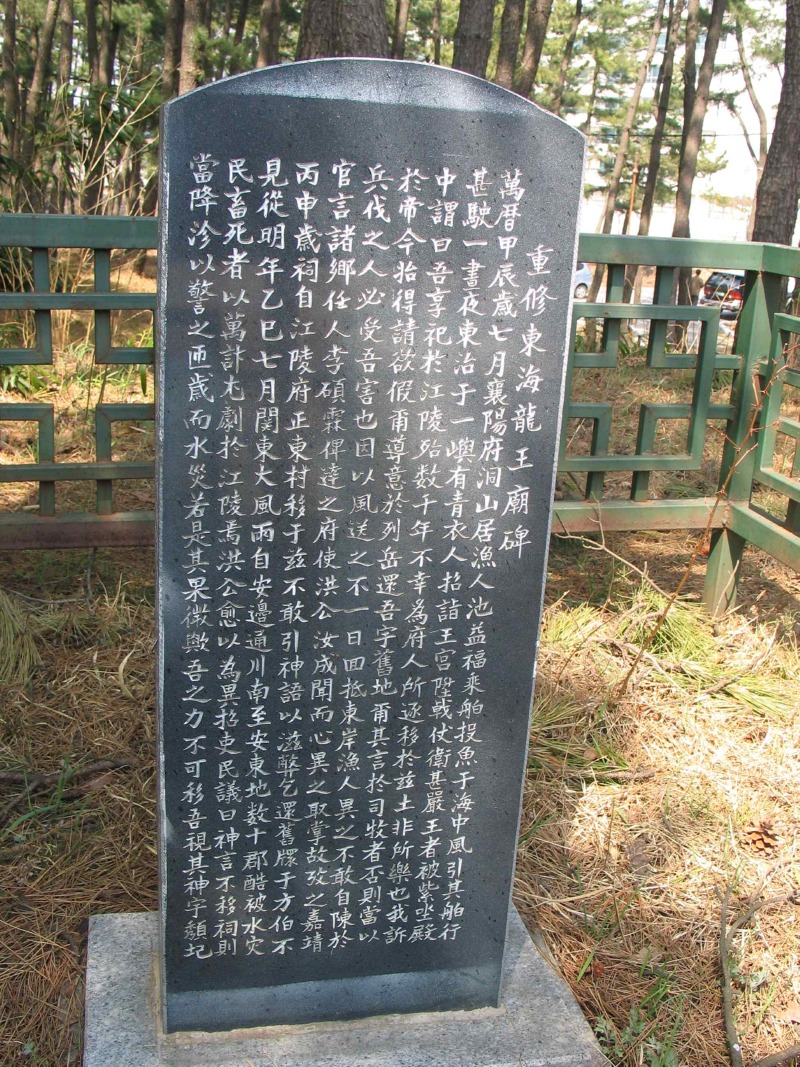 重修東海龍王廟碑
萬暦甲辰歲七月襄陽府洞山居漁人池益福乘船投魚于海中風引其船行
甚駛一晝夜東治于一嶼有青衣人招詣王宮陞戟仗衛甚嚴王者被紫坐殿
中謂曰吾享祀於江陵殆数千年不幸為府人所逐移於玆土非所樂也我訴
於帝今始得請欲假爾尊意於列岳還吾宇舊地爾其言於司牧者否則當以
兵伐之人必受吾害也因以風送之不一日回抵東岸漁人異之不敢自陳於
官言諸鄉任人李碩霖俾達之府使洪公汝成聞而心異之取掌故攷之嘉靖
丙申歲祠自江陵府正東村移于玆不敢引神語以滋弊乞還舊牒于方伯不
見從明年乙巳七月関東大風雨自安邊通川南至安東地数十郡酷被水灾
民畜死者以萬計尤劇於江陵焉洪公愈以為異招吏民議曰神言不移祠則
當降沴以警之匝歲而水災若是其果徵歟吾之力不可移吾視其神宇頹圮